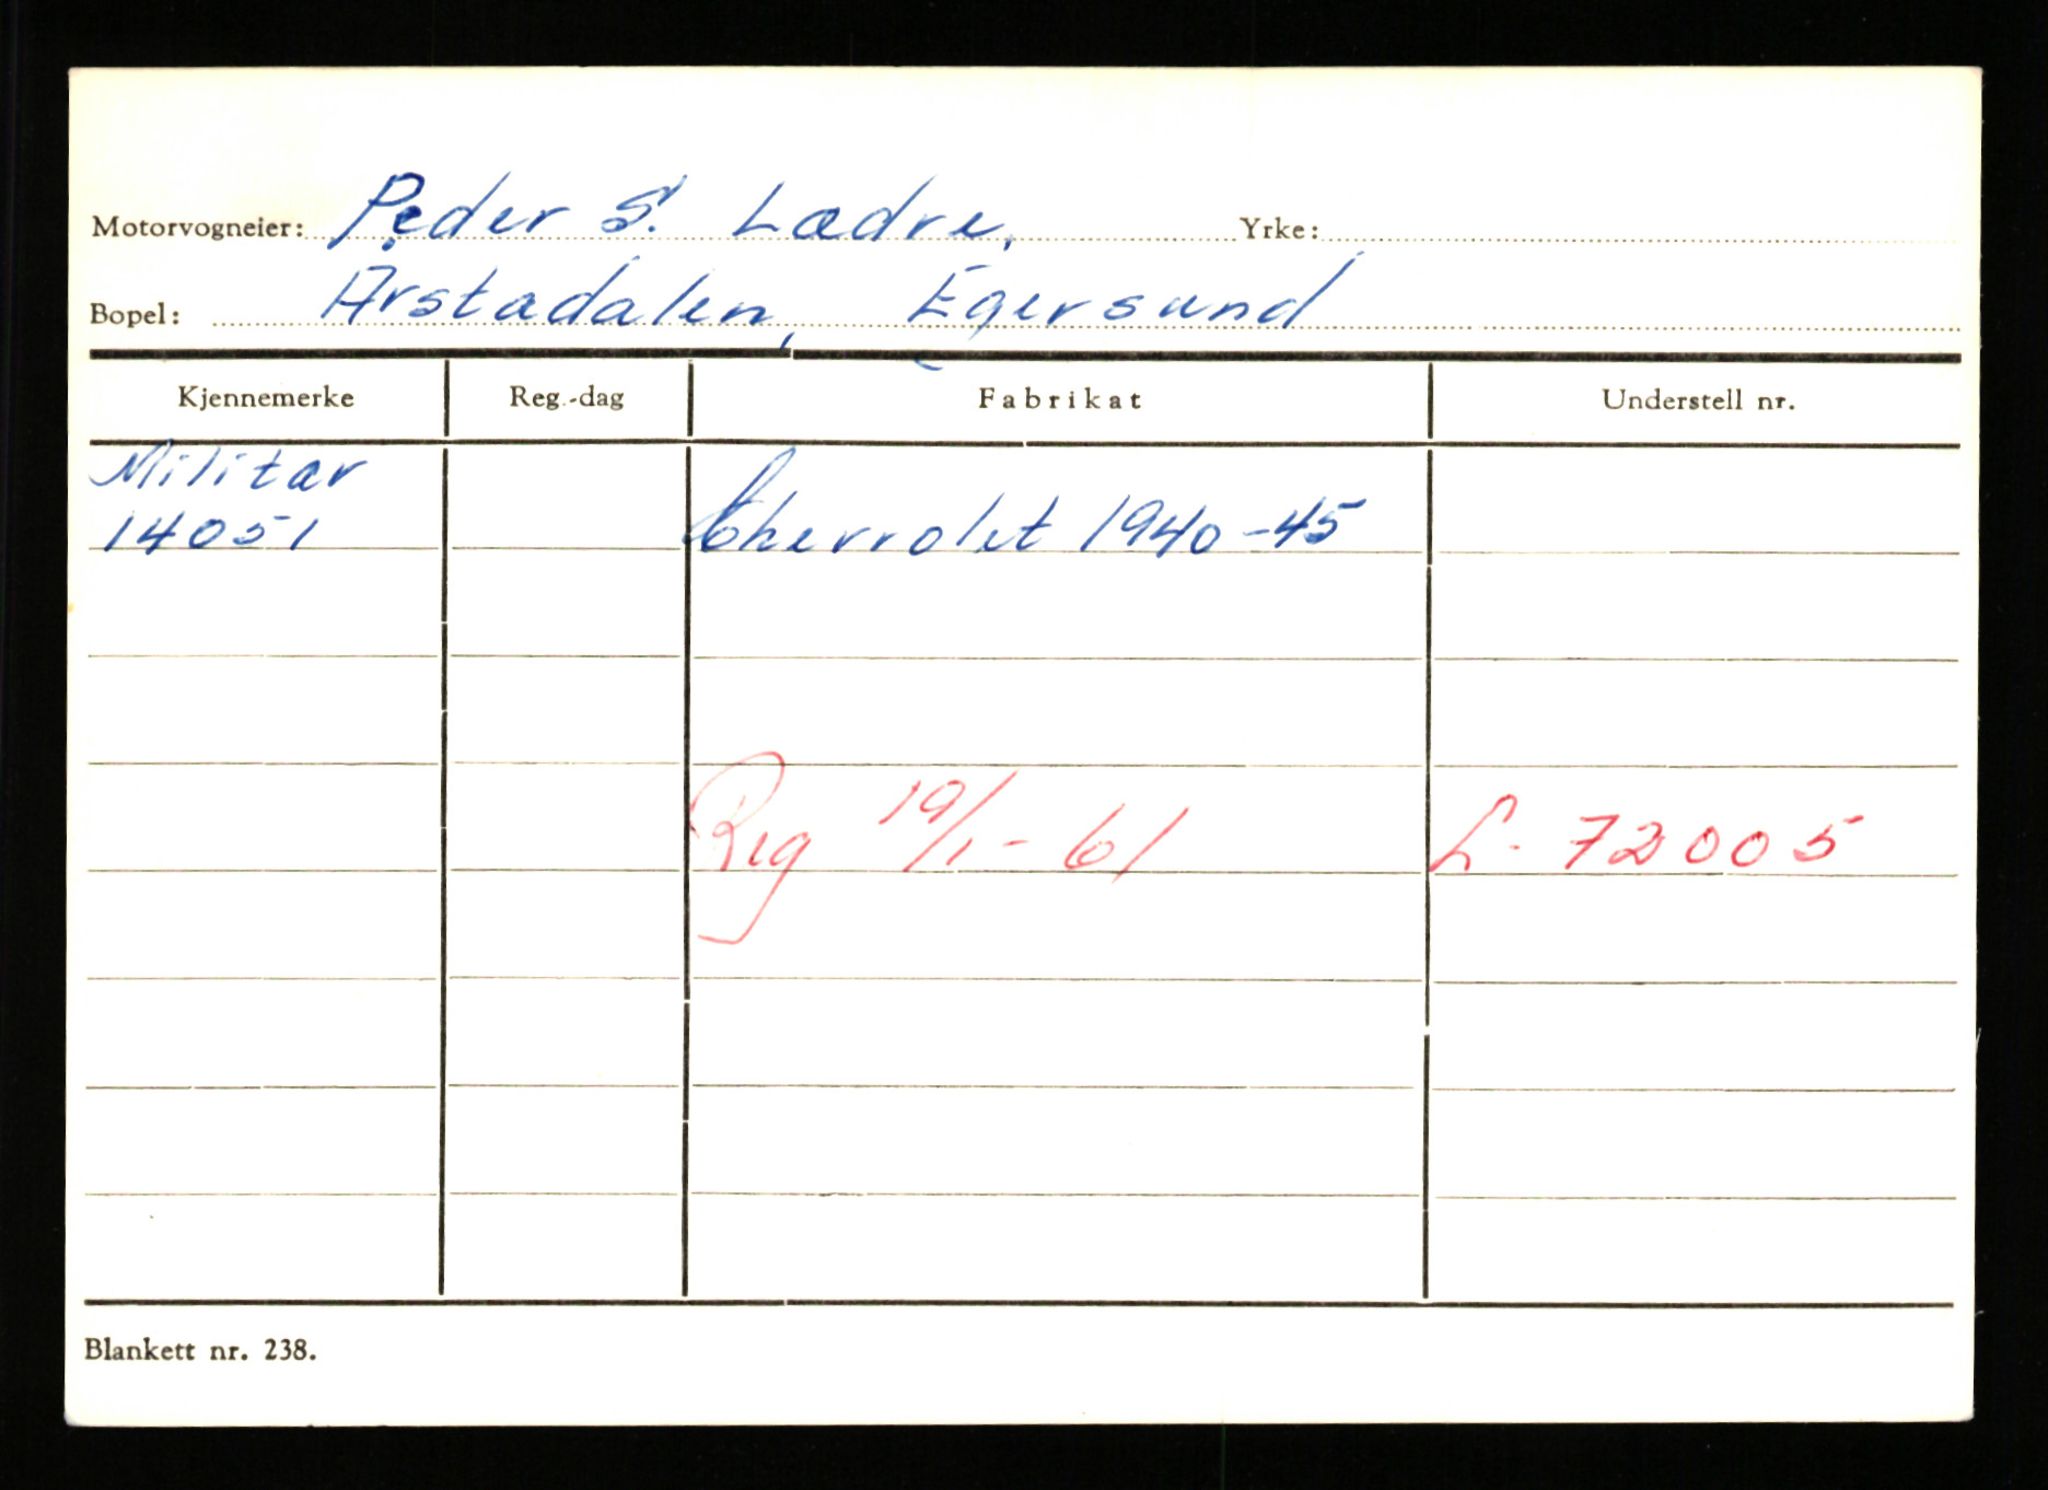 Motorvogneier: Peder S. Lædre, Yrke:
Bopel: Årstadalen, Egersund
Kjennemerke Reg.-dag Fabrikat Understell nr.
Militær
14051 Chevrolet 1940-45
Reg 19/1-61 L-72005
Blankett nr. 238.